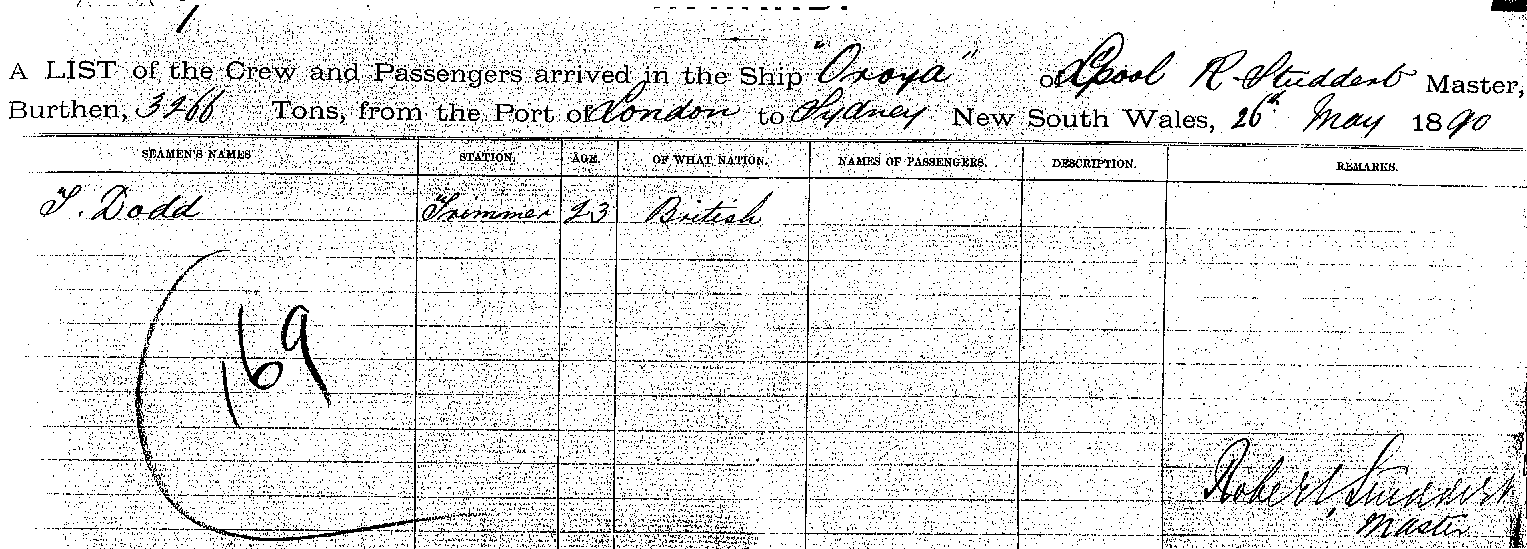 1
A LIST of the Crew and Passengers arrived in the Ship "Oroya" of Lpool R Studdert Master,
Burthen, 3266 Tons, from the Port of London to Sydney New South Wales, 26th May 1890
SEAMEN'S NAMES STATION. AGE. OF WHAT NATION. NAMES OF PASSENGERS. DESCRIPTION. REMARKS.
T. Dodd Trimmer 23 British
169
Robert Studdert
Master